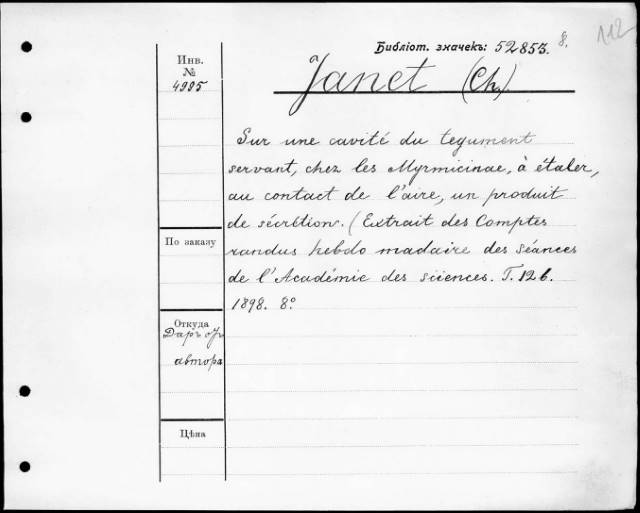 112
Библіот. значекъ: 52853. 8.
Janet (Ch).
Инв.
№
4995
Sur une cavité du tegument
servant, chez les Myrmicinae, à étaler,
au contact de l'aire, un produit
de sécrétion. (Extrait des Comptes
randus hebdo madaire des Séances
de l'Académie des sciences. T. 126.
1898. 8°
По заказу
Откуда
Даръ отъ
автора
Цѣна